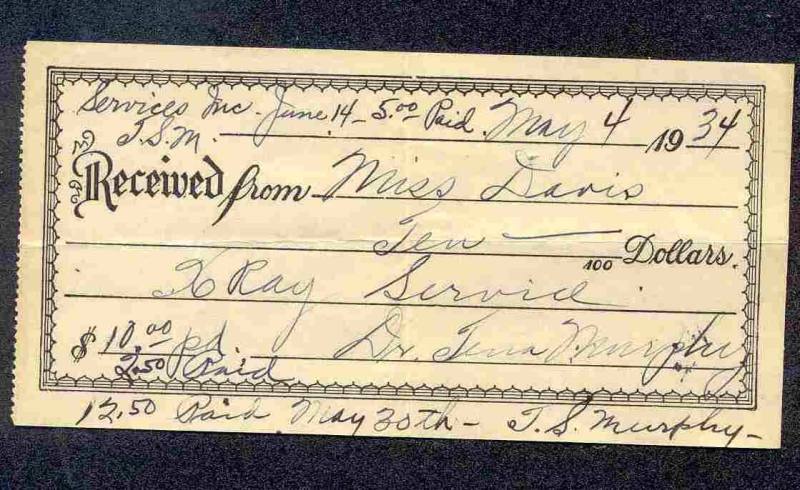 Services Inc. June 14 - 5.00 Paid. May 4 1934
T.S.M.
Received from Miss Davis
Ten — 100 Dollars.
X Ray Service
$ 10.00 pd Dr. Tena Murphy
2.50 Paid
12.50 Paid May 30th - T.S. Murphy -